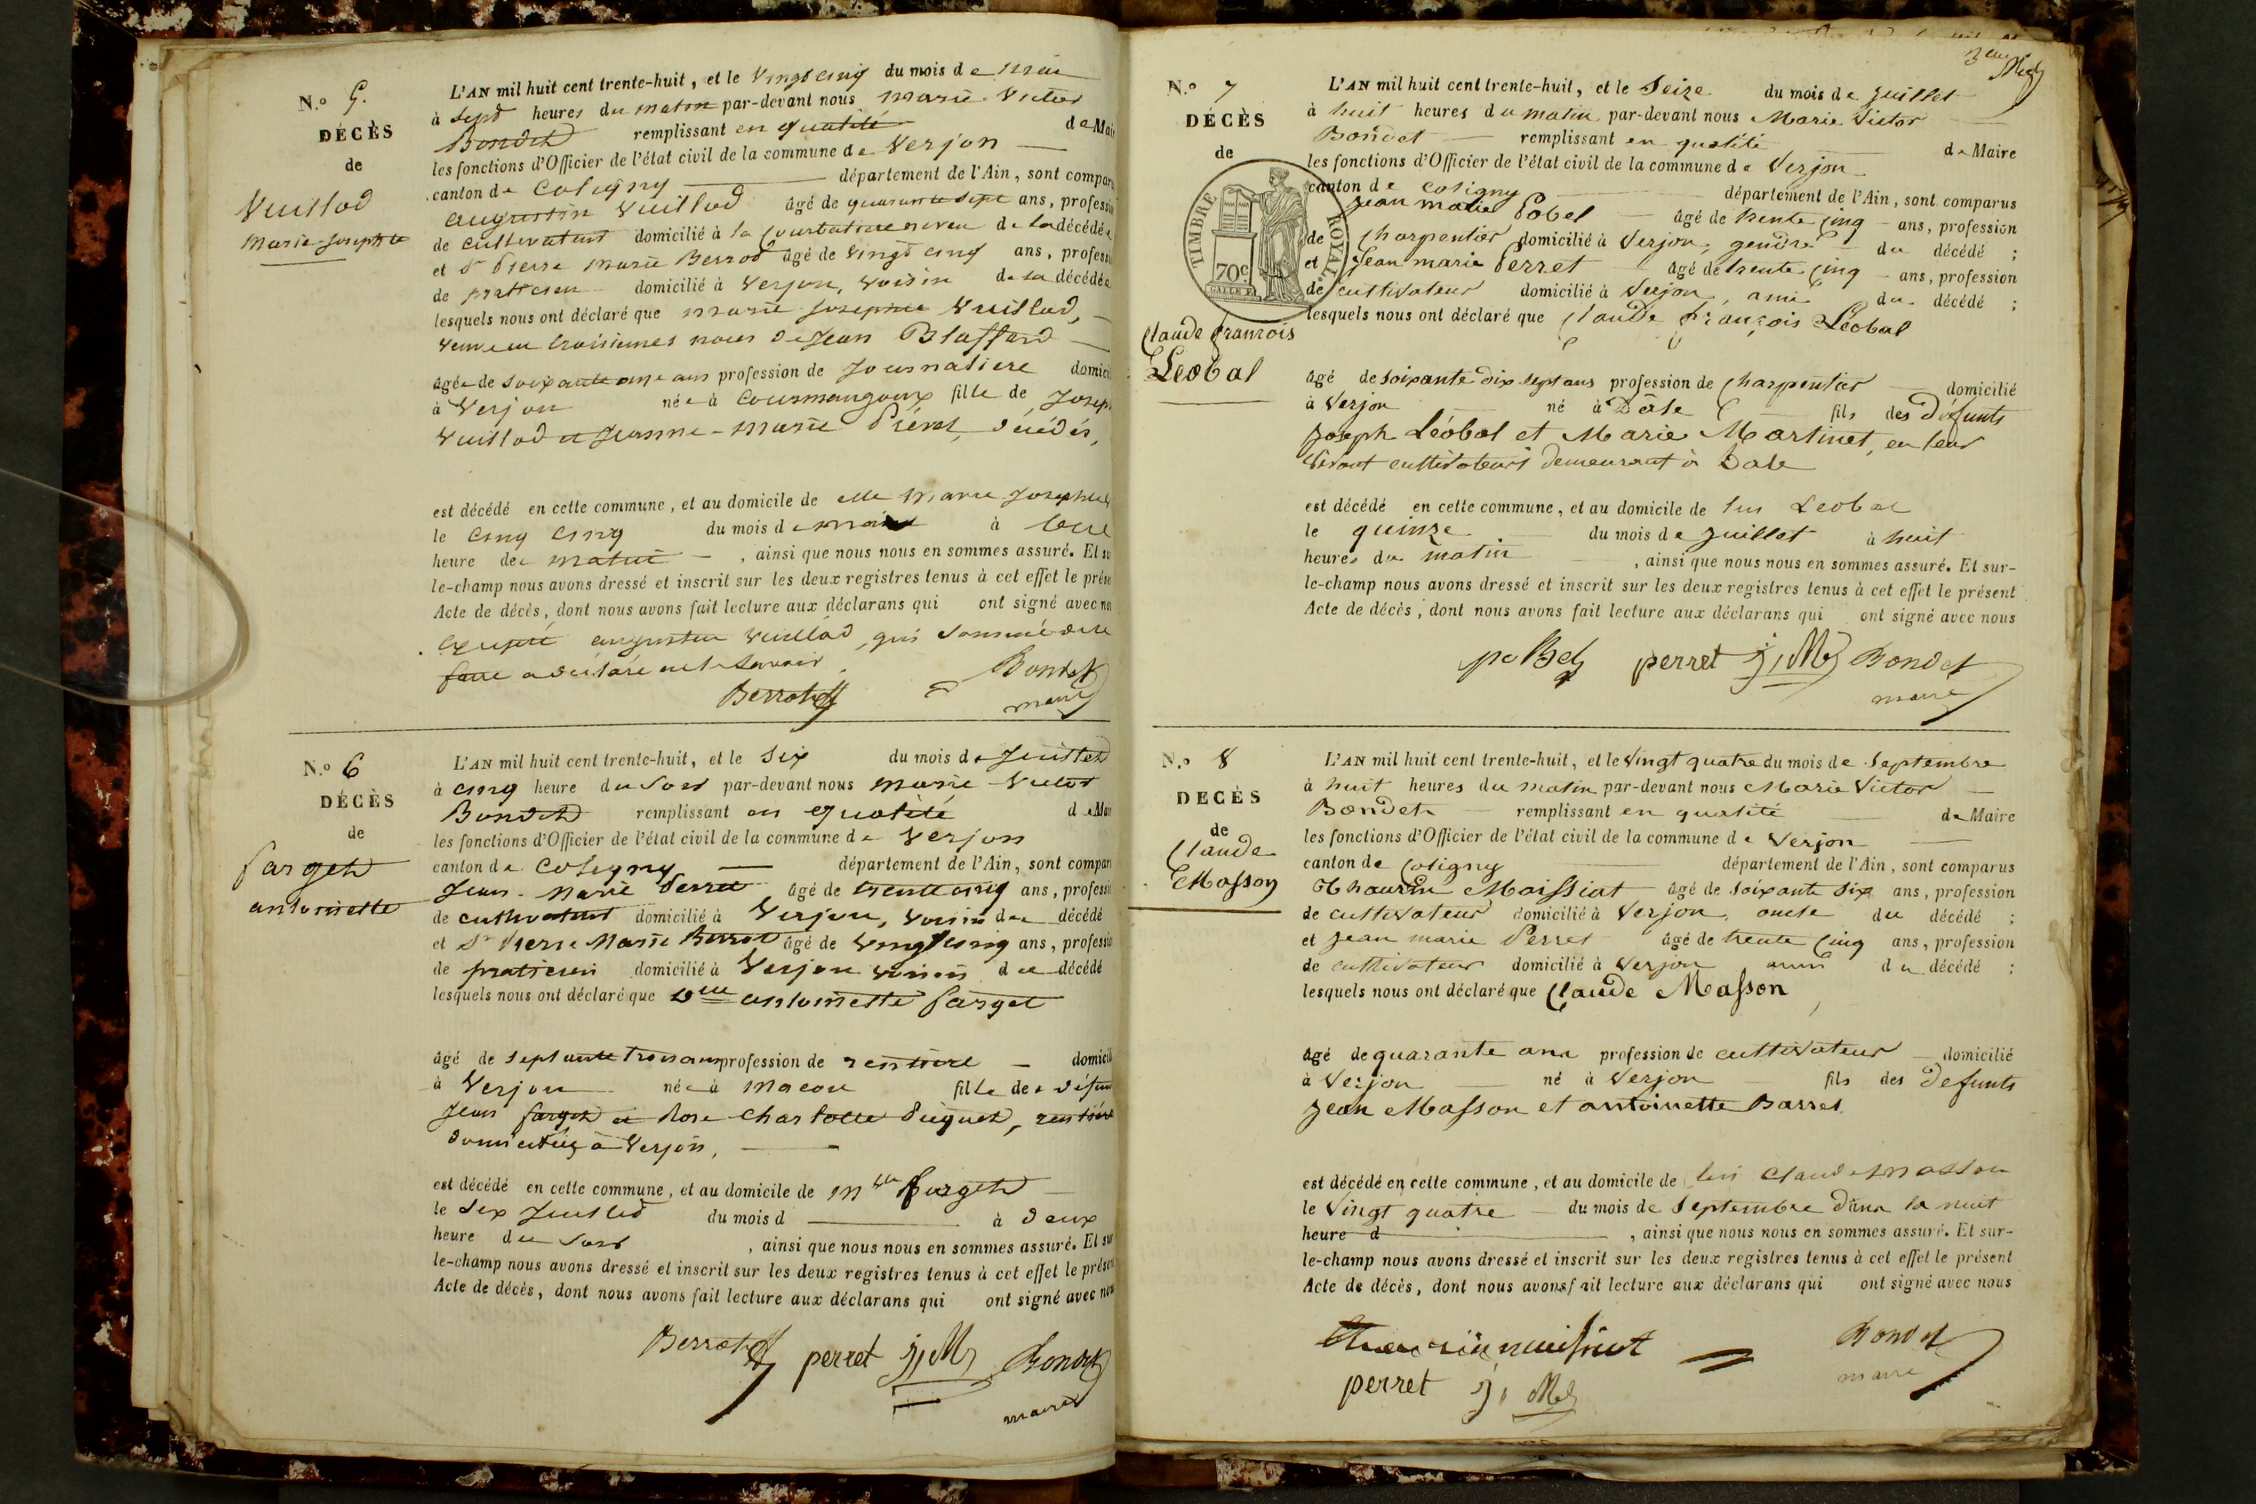 N.o 5.
DÉCÈS
de
Vuillod
Marie-Josephte
L'AN mil huit cent trente-huit, et le vingt cinq du mois de mai
à sept heures du matin par-devant nous Marie Victor
Bondet remplissant en qualité de Mai
les fonctions d'Officier de l'état civil de la commune de Verjon
canton de Coligny département de l'Ain, sont compar
augustin Vuillod âgé de quarante sept ans, professi
de cultivateur domicilié à la Courbatiere neveu de la décédée
et Sr Pierre Marie Berrod âgé de vingt cinq ans, profess
de praticien domicilié à Verjon, voisin de la décédée
lesquels nous ont déclaré que Marie Josephte Vuillod,
veuve en troisiemes noces de Jean Blaffard
âgée de soixante onze ans profession de Journaliere domici
à Verjon née à Courmangoux fille de Josep
Vuillod et Jeanne-Marie Prévet, décédés,
est décédé en cette commune, et au domicile de elle Marie Josephte
le cinq du mois de mai à
heure de matin, ainsi que nous nous en sommes assuré. Et su
le-champ nous avons dressé et inscrit sur les deux registres tenus à cet effet le prése
Acte de décès, dont nous avons fait lecture aux déclarans qui ont signé avec no
excepté augustin Vuillod, qui sommé de le
faire a déclaré ne le savoir.
Berrod Bondet
maire
N.o 6
DÉCÈS
de
farget
antoinette
L'AN mil huit cent trente-huit, et le six du mois de Juillet
à cinq heure du soir par-devant nous Marie Victor
Bondet remplissant en qualité de Mai
les fonctions d'Officier de l'état civil de la commune de Verjon
canton de Coligny département de l'Ain, sont compar
Jean-Marie Perret âgé de trente cinq ans, professi
de cultivateur domicilié à Verjon, voisin du décédé
et Sr Pierre Marie Berrod âgé de vingt cinq ans, professio
de praticien domicilié à Verjon voisin du décédé
lesquels nous ont déclaré que Dlle antoinette farget
âgé de septante trois ans profession de rentiere domicili
à Verjon née à Macon fille de défun
Jean farget et Rose Charlotte Piquet, rentiére
domiciliés à Verjon,
est décédé en cette commune, et au domicile de Mlle farget
le six Juillet du mois d à deux
heure du soir, ainsi que nous nous en sommes assuré. Et sur
le-champ nous avons dressé et inscrit sur les deux registres tenus à cet effet le présen
Acte de décès, dont nous avons fait lecture aux déclarans qui ont signé avec nou
Berrod perret j, M Bondet
maire
N.o 7
DÉCÈS
de
TIMBRE ROYAL
70c
Claude françois
Léobal
L'AN mil huit cent trente-huit, et le Seize du mois de juillet
à huit heures du matin par-devant nous Marie Victor
Bondet remplissant en qualité de Maire
les fonctions d'Officier de l'état civil de la commune de Verjon
canton de Coligny département de l'Ain, sont comparus
Jean marie Pobel âgé de trente cinq ans, profession
de Charpentier domicilié à Verjon, gendre du décédé ;
et Jean marie Perret âgé de trente cinq ans, profession
de cultivateur domicilié à Verjon, ami du décédé ;
lesquels nous ont déclaré que Claude françois Léobal
âgé de soixante dix sept ans profession de Charpentier domicilié
à Verjon né à Dâle fils des Défunts
Joseph Léobal et Marie Martinet, en leur
vivant cultivateurs demeurant à Dale
est décédé en cette commune, et au domicile de lui Leobal
le quinze du mois de juillet à huit
heures du matin, ainsi que nous nous en sommes assuré. Et sur-
le-champ nous avons dressé et inscrit sur les deux registres tenus à cet effet le présent
Acte de décès, dont nous avons fait lecture aux déclarans qui ont signé avec nous
poBel perret j, M Bondet
maire
N.o 8
DECÈS
de
Claude
Masson
L'AN mil huit cent trente-huit, et le Vingt quatre du mois de Septembre
à huit heures du matin par-devant nous Marie Victor
Bondet remplissant en qualité de Maire
les fonctions d'Officier de l'état civil de la commune de Verjon
canton de Coligny département de l'Ain, sont comparus
Thaurin Maissiat âgé de soixante six ans, profession
de cultivateur domicilié à Verjon, oncle du décédé ;
et Jean marie Perret âgé de trente cinq ans, profession
de cultivateur domicilié à Verjon ami du décédé ;
lesquels nous ont déclaré que Claude Masson
âgé de quarante ans profession de cultivateur domicilié
à Verjon né à Verjon fils des Defunts
Jean Masson et antoinette Barret
est décédé en cette commune, et au domicile de lui Claude Masson
le Vingt quatre du mois de Septembre dans la nuit
heure d, ainsi que nous nous en sommes assuré. Et sur-
le-champ nous avons dressé et inscrit sur les deux registres tenus à cet effet le présent
Acte de décès, dont nous avons fait lecture aux déclarans qui ont signé avec nous
Bondet
perret j, M maire